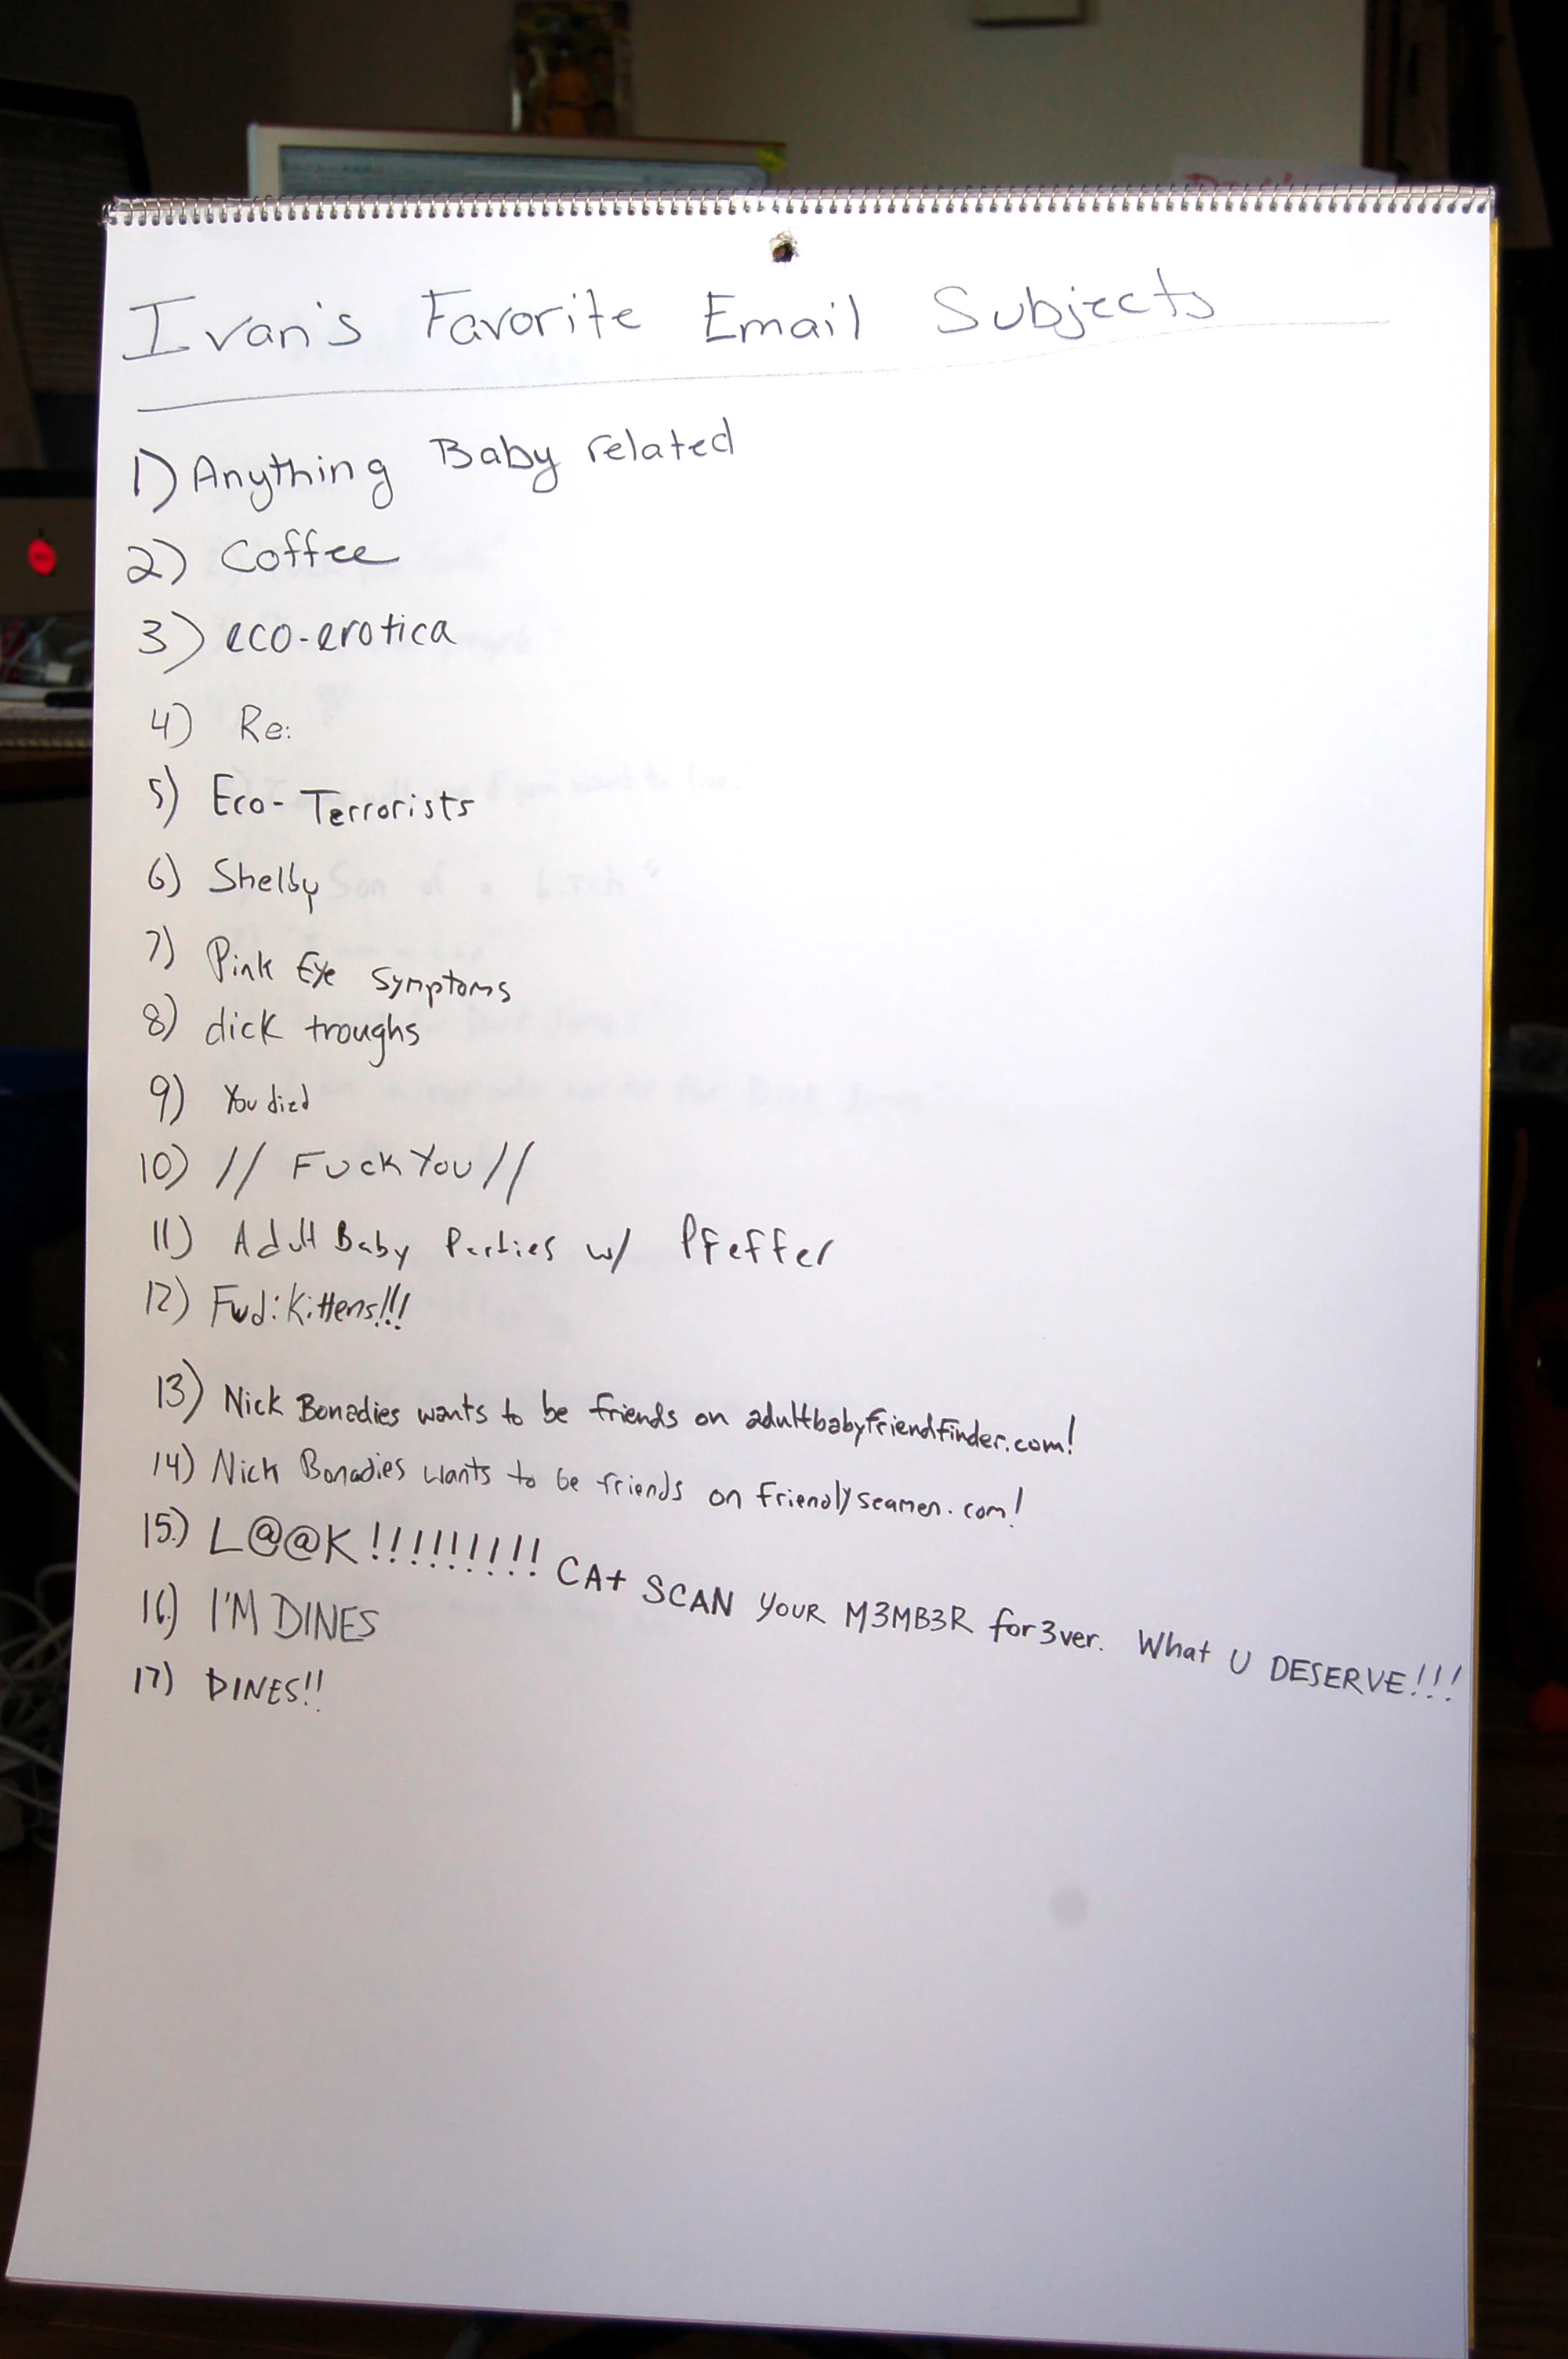 Ivan's Favorite Email Subjects
1) Anything Baby related
2) Coffee
3) eco-erotica
4) Re:
5) Eco-Terrorists
6) Shelby
7) Pink Eye Symptoms
8) dick troughs
9) You died
10) // Fuck You //
11) Adult Baby Parties w/ Pfeffer
12) Fwd: Kittens!!!
13) Nick Bonadies wants to be friends on adultbabyfriendfinder.com!
14) Nick Bonadies wants to be friends on friendlyseamen.com!
15.) L@@K!!!!!!!!! CAt SCAN YOUR M3MB3R for3ver. What U DESERVE!!!
16.) I'M DINES
17) DINES!!